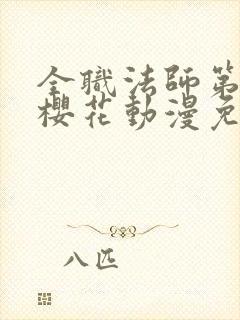 全職法師第
櫻花動漫免
八匹